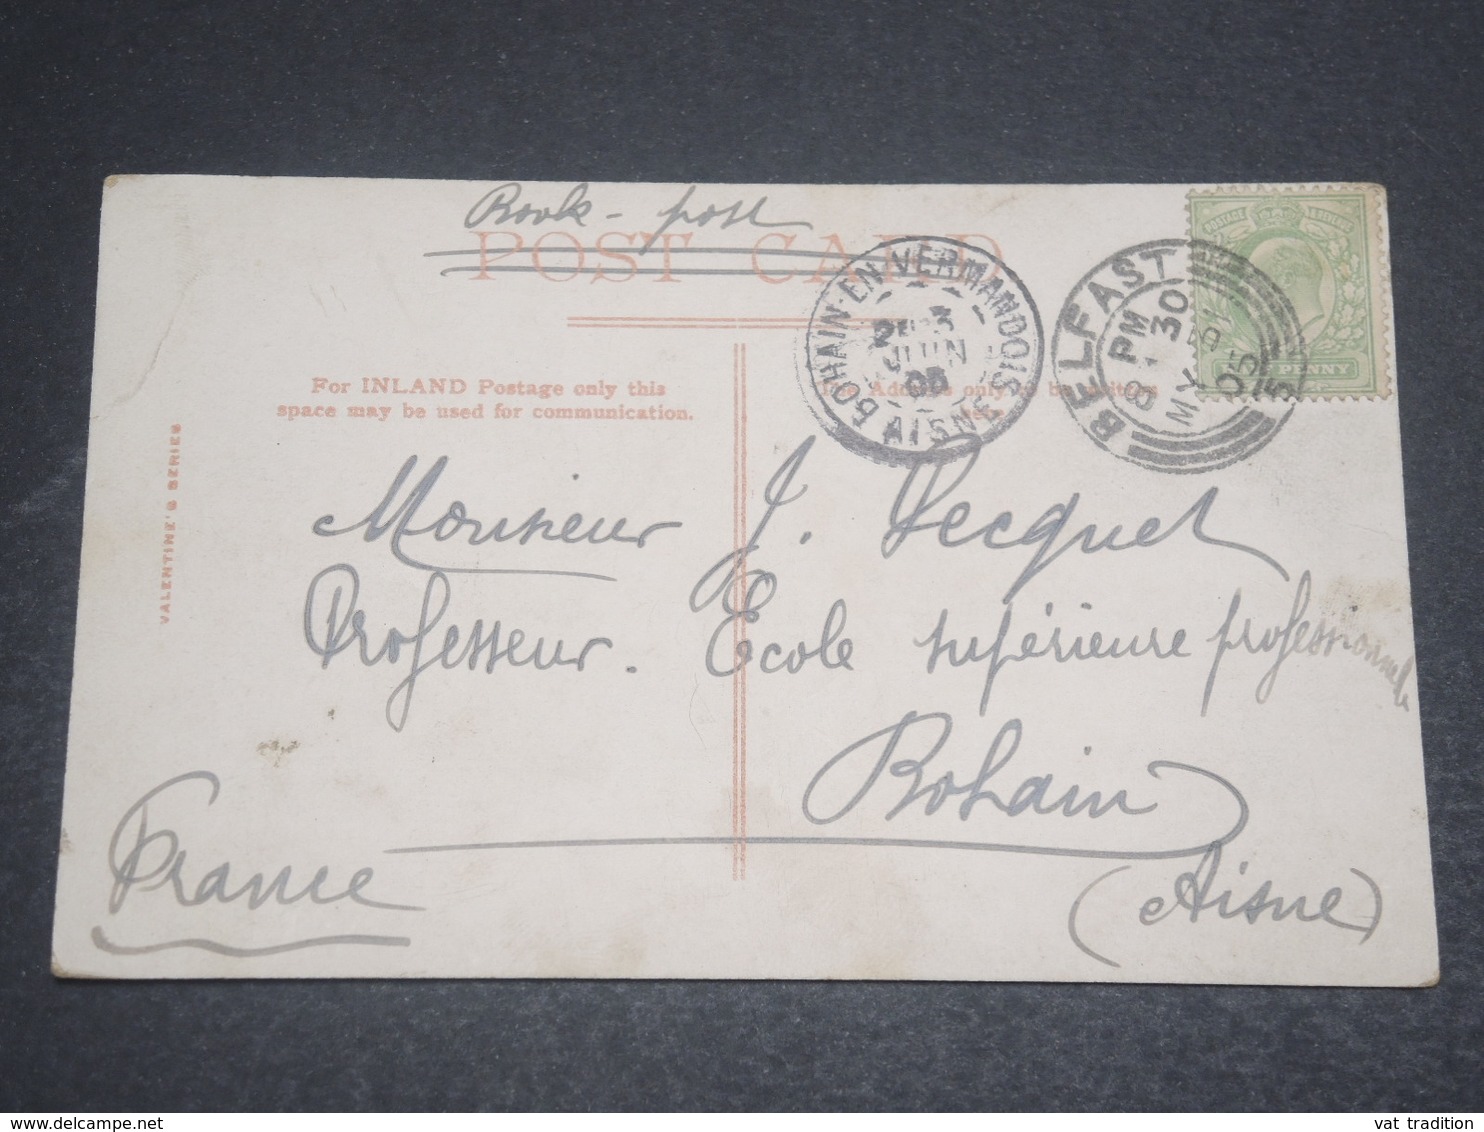 Book - post
POST CARD
BOHAIN-EN-VERMANDOIS
3
JUIN
05
AISNE
BELFAST
8 30 PM
MY
05
POSTAGE & REVENUE
PENNY
For INLAND Postage only this
space may be used for communication.
The Address only to be written
here.
VALENTINE'S SERIES
Monsieur J. Lecquet
Professeur. École supérieure professionnelle
Bohain
(Aisne)
France
vat tradition
delcampe.net